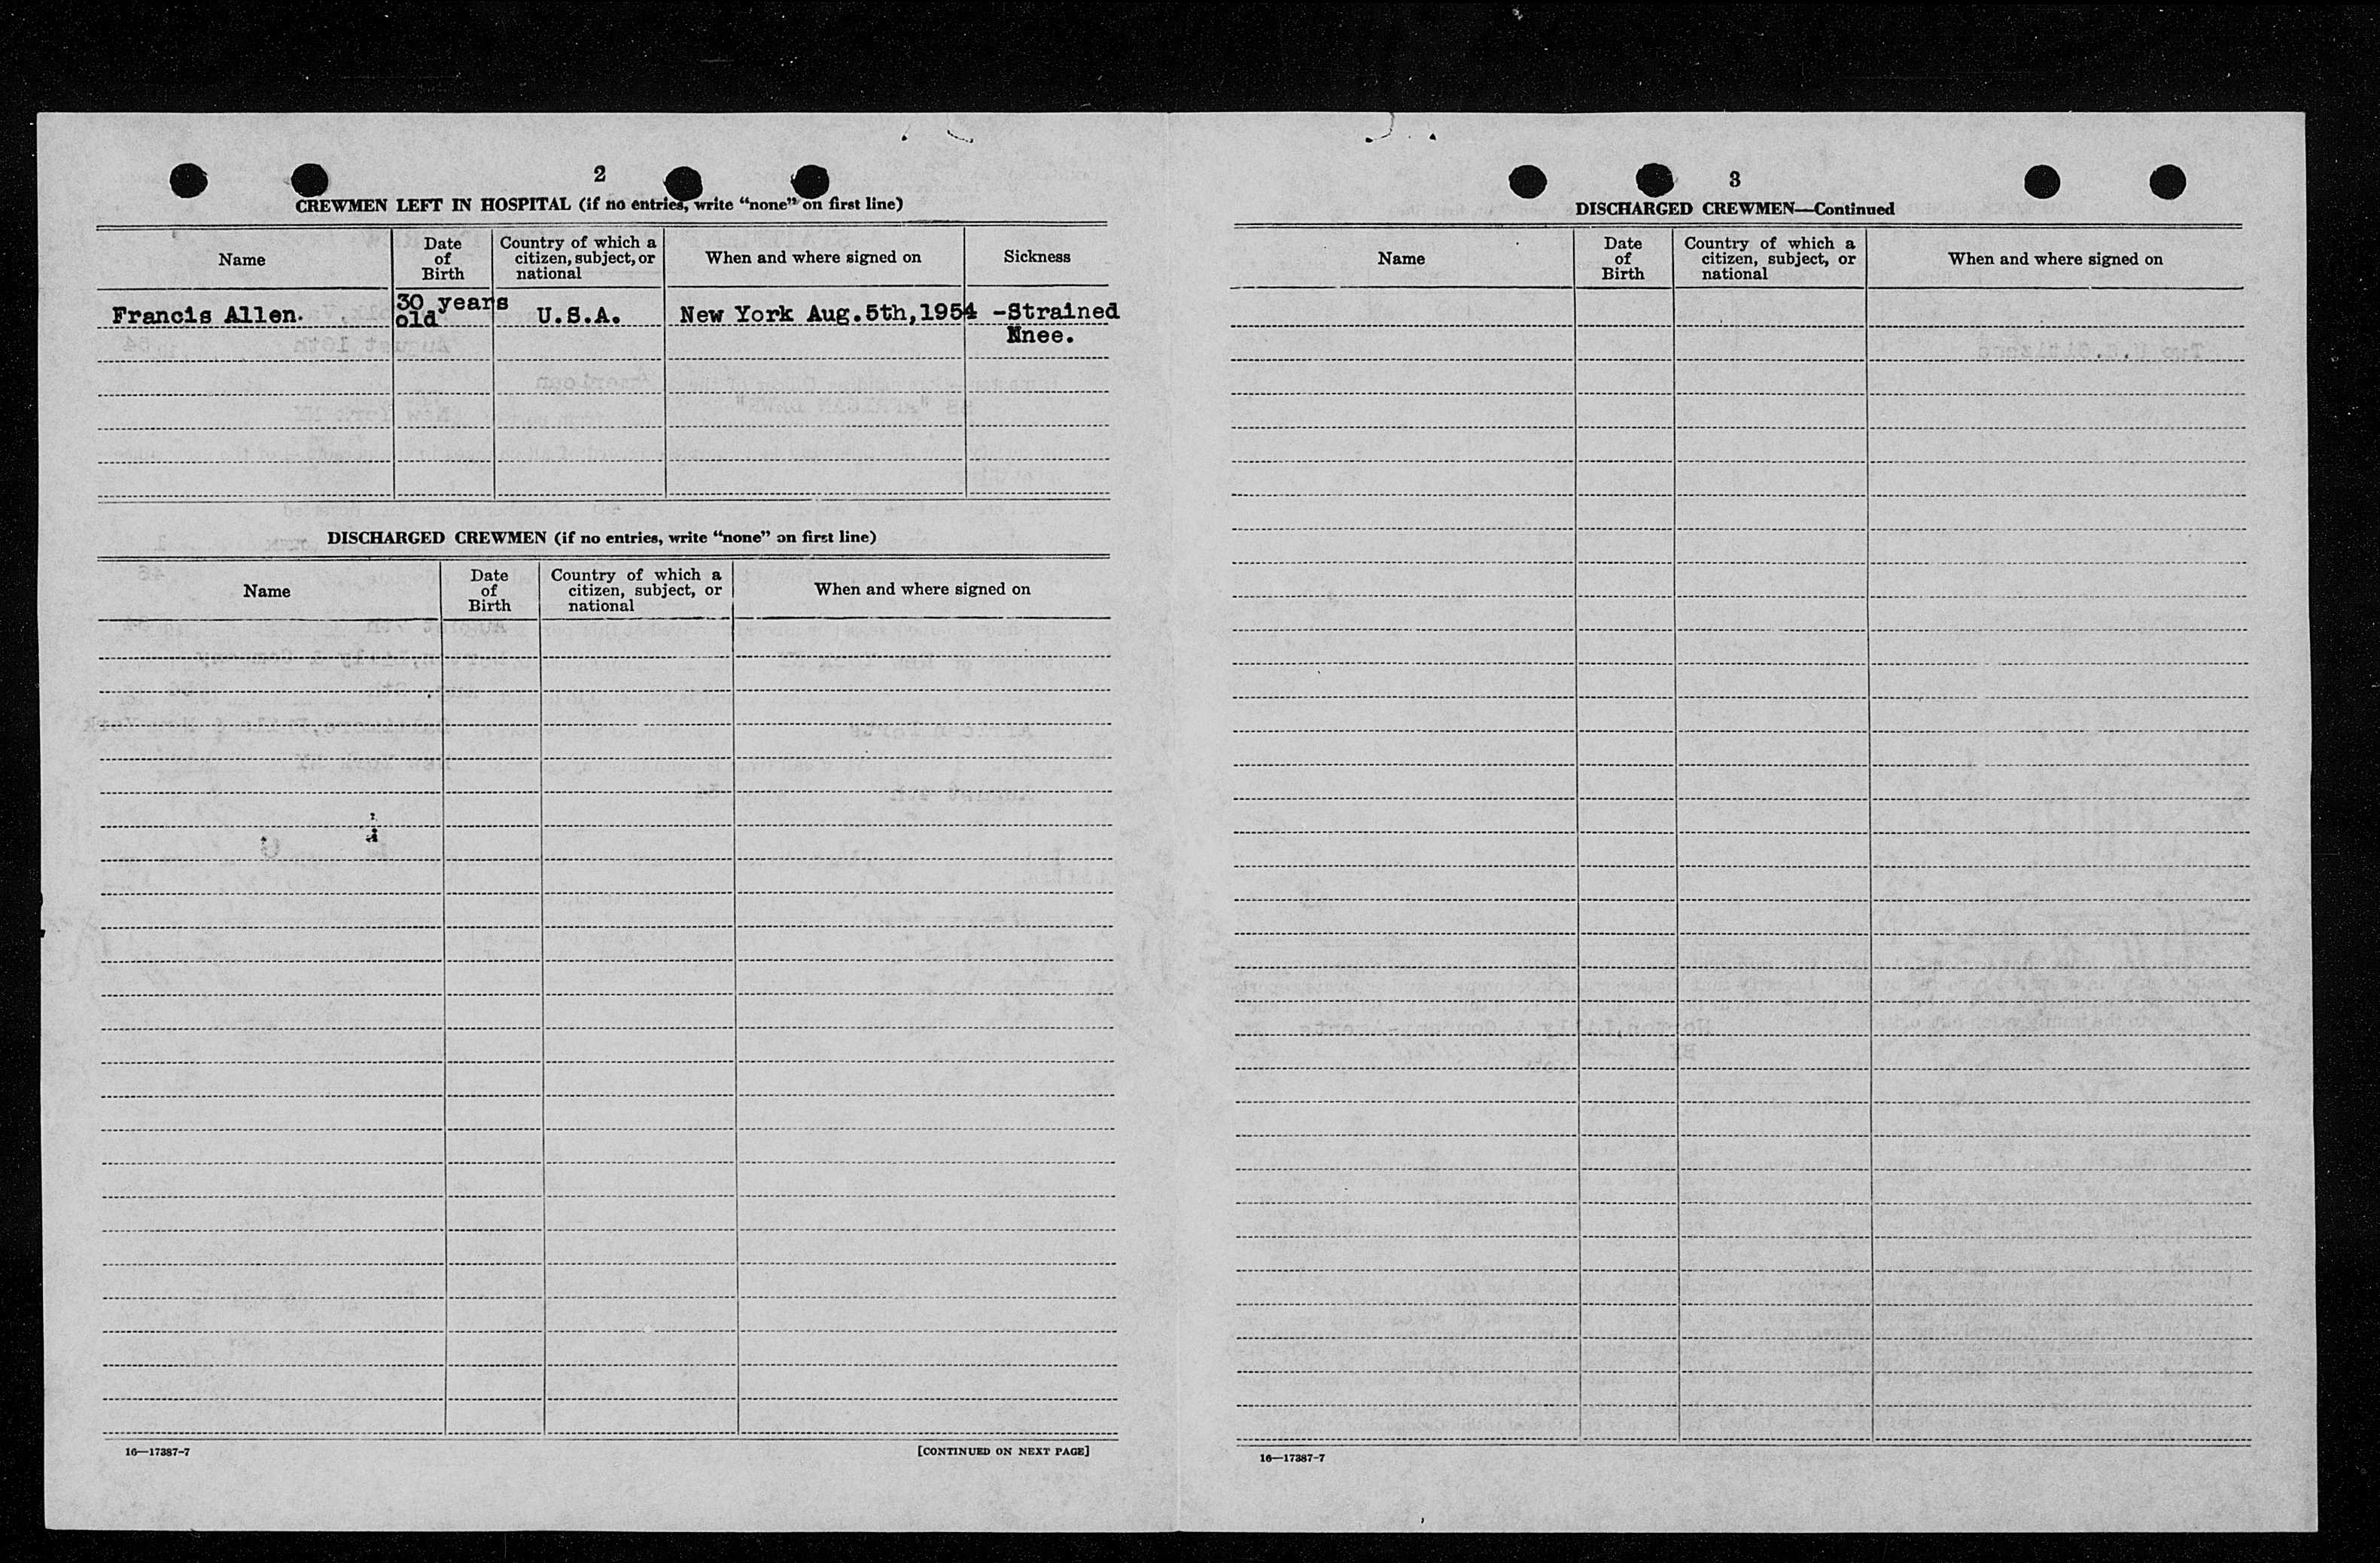 2
CREWMEN LEFT IN HOSPITAL (if no entries, write “none” on first line)
Name
Date of Birth
Country of which a citizen, subject, or national
When and where signed on
Sickness
Francis Allen.
30 years old
U.S.A.
New York Aug.5th,1954
-Strained
Knee.
DISCHARGED CREWMEN (if no entries, write “none” on first line)
Name
Date of Birth
Country of which a citizen, subject, or national
When and where signed on
16—17387-7
[CONTINUED ON NEXT PAGE]
3
DISCHARGED CREWMEN—Continued
Name
Date of Birth
Country of which a citizen, subject, or national
When and where signed on
16—17387-7